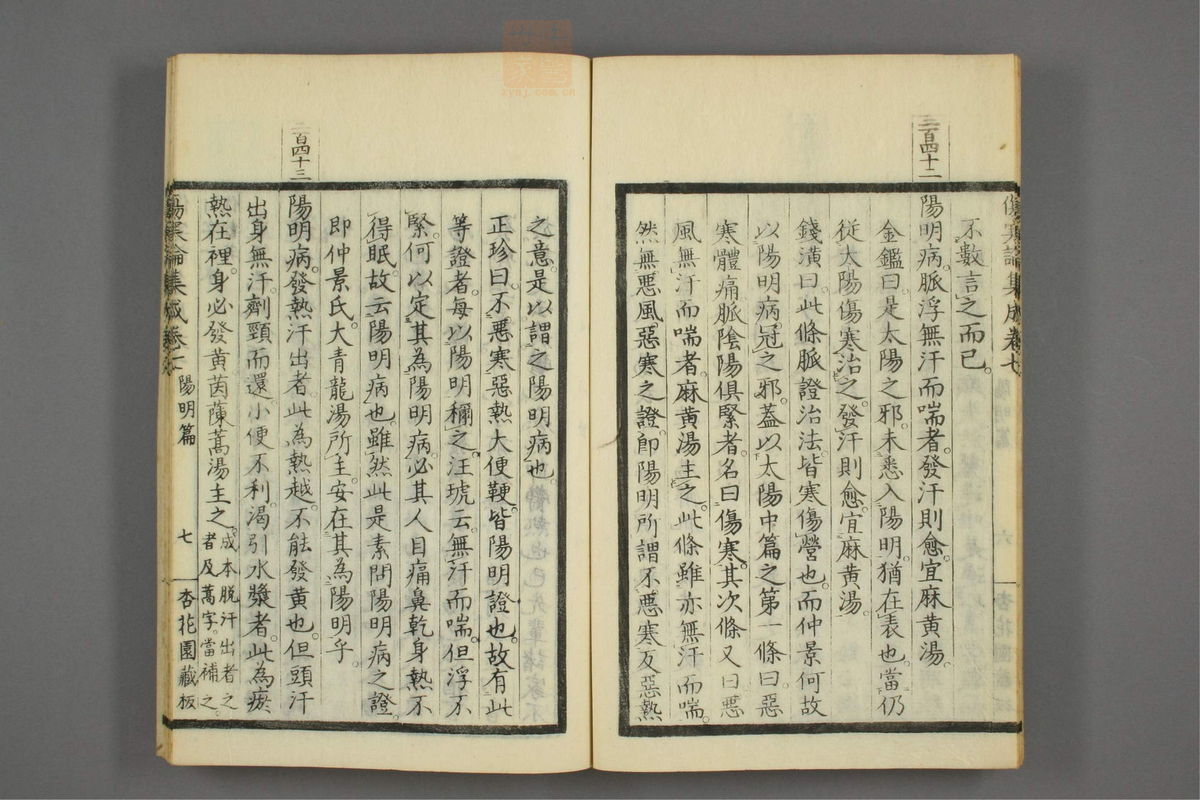 不數言之而已。
三百四十二
陽明病。脈浮無汗而喘者。發汗則愈。宜麻黃湯。
金鑑曰。是太陽之邪。未悉入陽明。猶在表也。當仍
從太陽傷寒治之。發汗則愈。宜麻黃湯。
錢潢曰。此條脈證治法。皆寒傷營也。而仲景何故
以陽明病冠之邪。蓋以太陽中篇之第一條曰惡
寒體痛脈陰陽俱緊者。名曰傷寒。其次條又曰惡
風無汗而喘者。麻黃湯主之。此條雖亦無汗而喘。
然無惡風惡寒之證。卽陽明所謂不惡寒反惡熱
之意。是以謂之陽明病也。
正珍曰。不惡寒惡熱大便鞕。皆陽明證也。故有此
等證者。每以陽明稱之。汪琥云。無汗而喘。但浮不
緊。何以定其為陽明病。必其人目痛鼻乾身熱不
得眠。故云陽明病也。雖然此是素問陽明病之證。
即仲景氏大青龍湯所主。安在其為陽明乎。
二百四十三
陽明病。發熱汗出者。此為熱越。不能發黃也。但頭汗
出身無汗。劑頸而還。小便不利。渴引水漿者。此為瘀
熱在裡。身必發黃。茵蔯蒿湯主之。成本脫汗出者之
者及蒿字。當補之。
傷寒論集成卷七 陽明篇 七 杏花園藏板
傷寒論集成卷七
zysj.com.cn